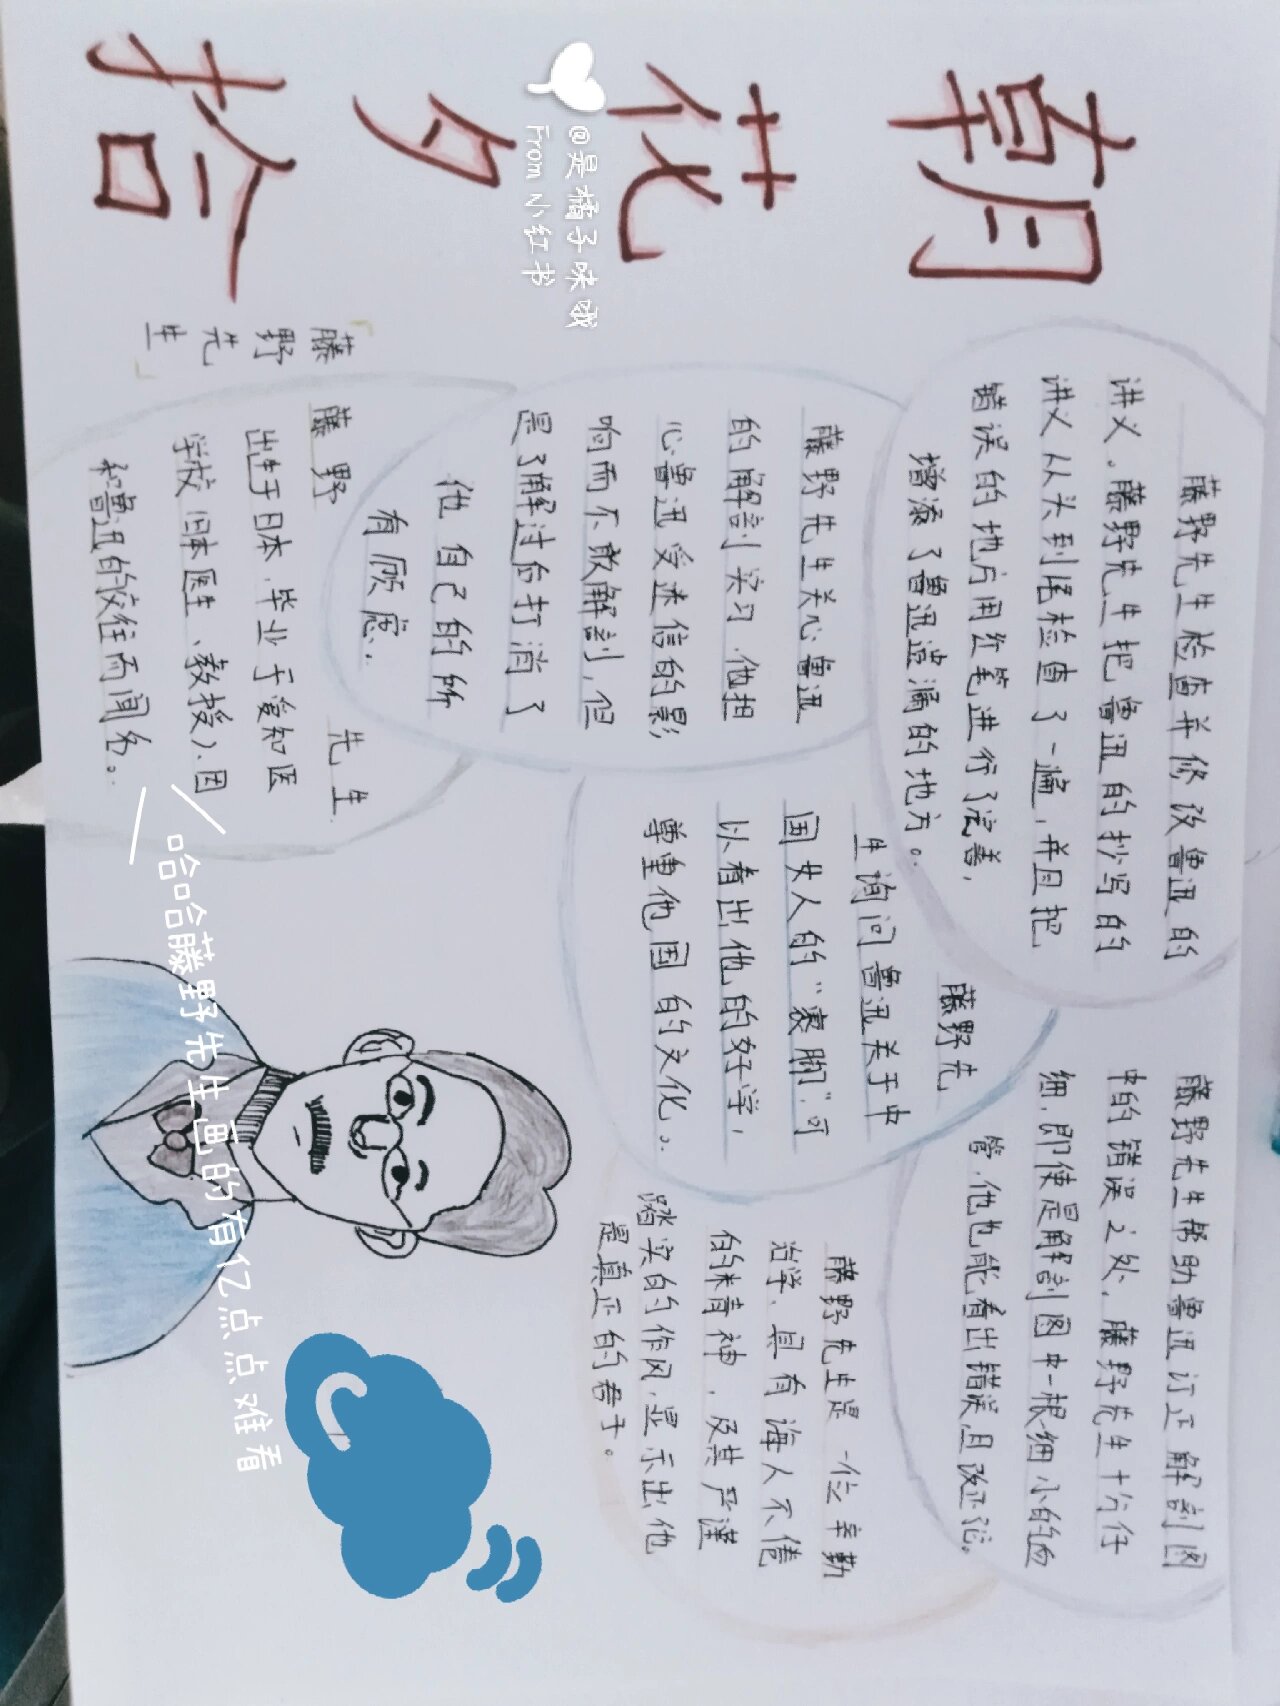 朝花夕拾
「藤野先生」
@是橘子味哦
From 小红书
藤野先生检查并修改鲁迅的
讲义。藤野先生把鲁迅的抄写的
讲义从头到尾检查了一遍,并且把
错误的地方用红笔进行了完善,
增添了鲁迅遗漏的地方。
藤野先生关心鲁迅
的解剖实习.他担
心鲁迅受迷信的影
响而不敢解剖,但
是了解过后打消了
他自己的所
有顾虑.
藤野 先生
出生于日本.毕业于爱知医
学校(日本医生、教授)、因
和鲁迅的交往而闻名。
藤野先生帮助鲁迅订正解剖图
中的错误之处,藤野先生十分仔
细.即使是解剖图中一根细小的血
管.他也能看出错误,且改正论。
藤野先
生询问鲁迅关于中
国女人的“裹脚”,可
以看出他的好学,
尊重他国的文化。
藤野先生是一位辛勤
治学、具有诲人不倦
的精神.及其严谨
踏实的作风.显示出他
是真正的君子。
哈哈藤野先生画的有亿点点难看